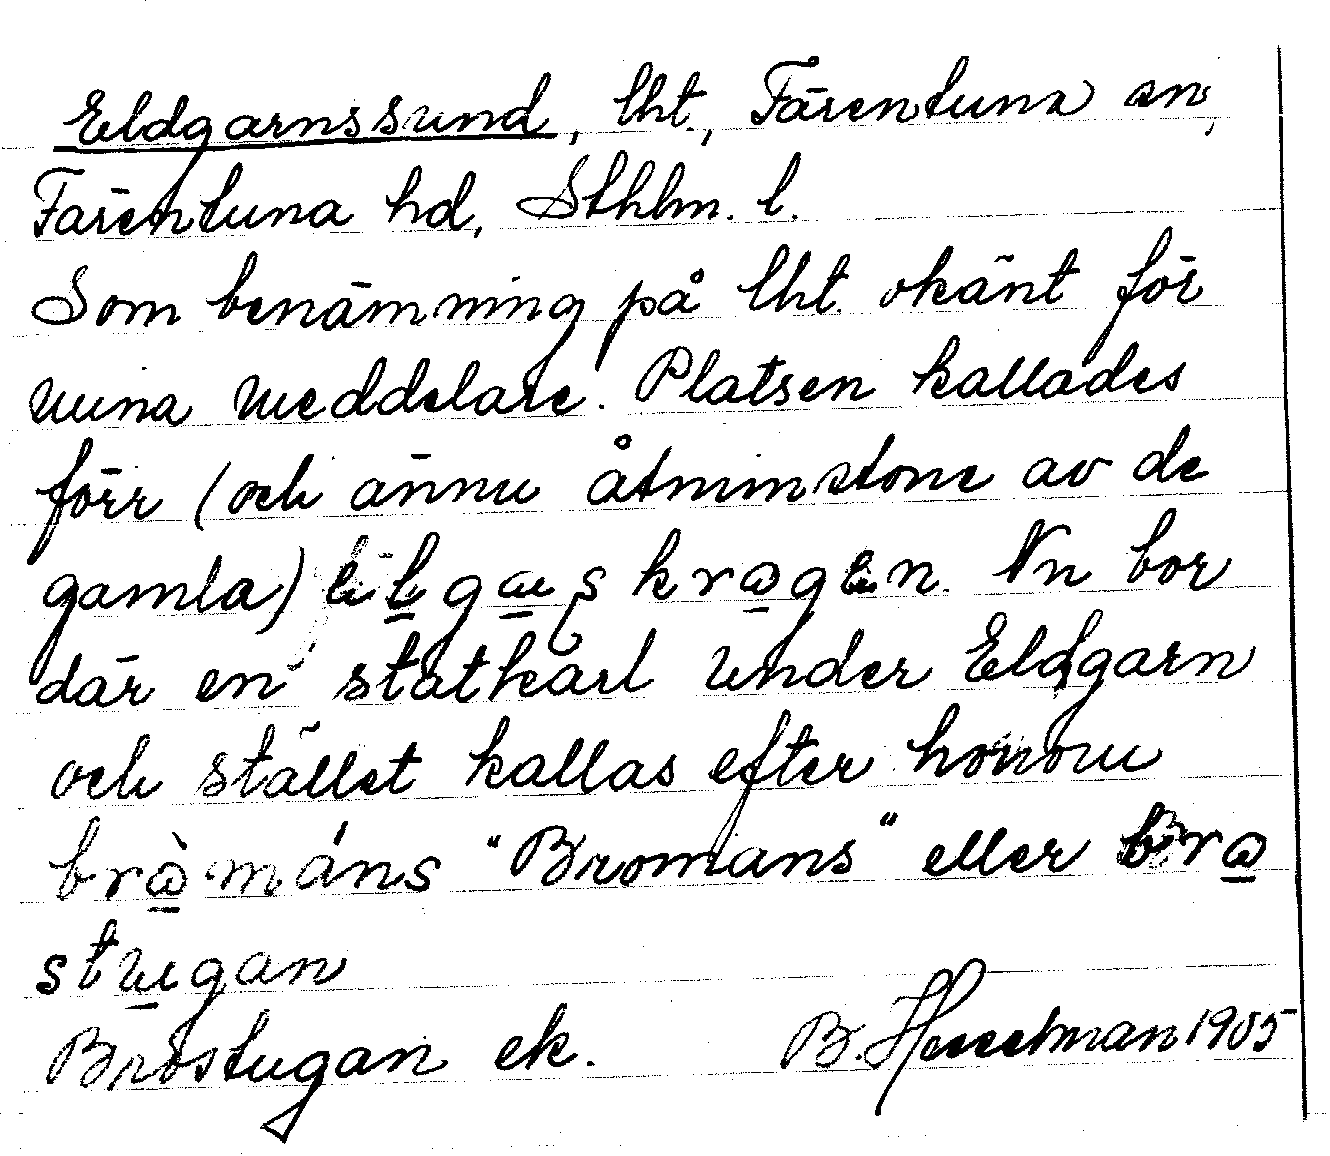 Eldgarnssund, lht., Färentuna sn,
Färentuna hd, Sthlm. l.
Som benämning på lht. okänt för
mina meddelare. Platsen kallades
förr (och ännu åtminstone av de
gamla) Nu bor
där en statkarl under Eldgarn
och stället kallas efter honom
bròmáns "Bromans" eller bro
stugan
Brostugan ek. B. Hesselman 1905